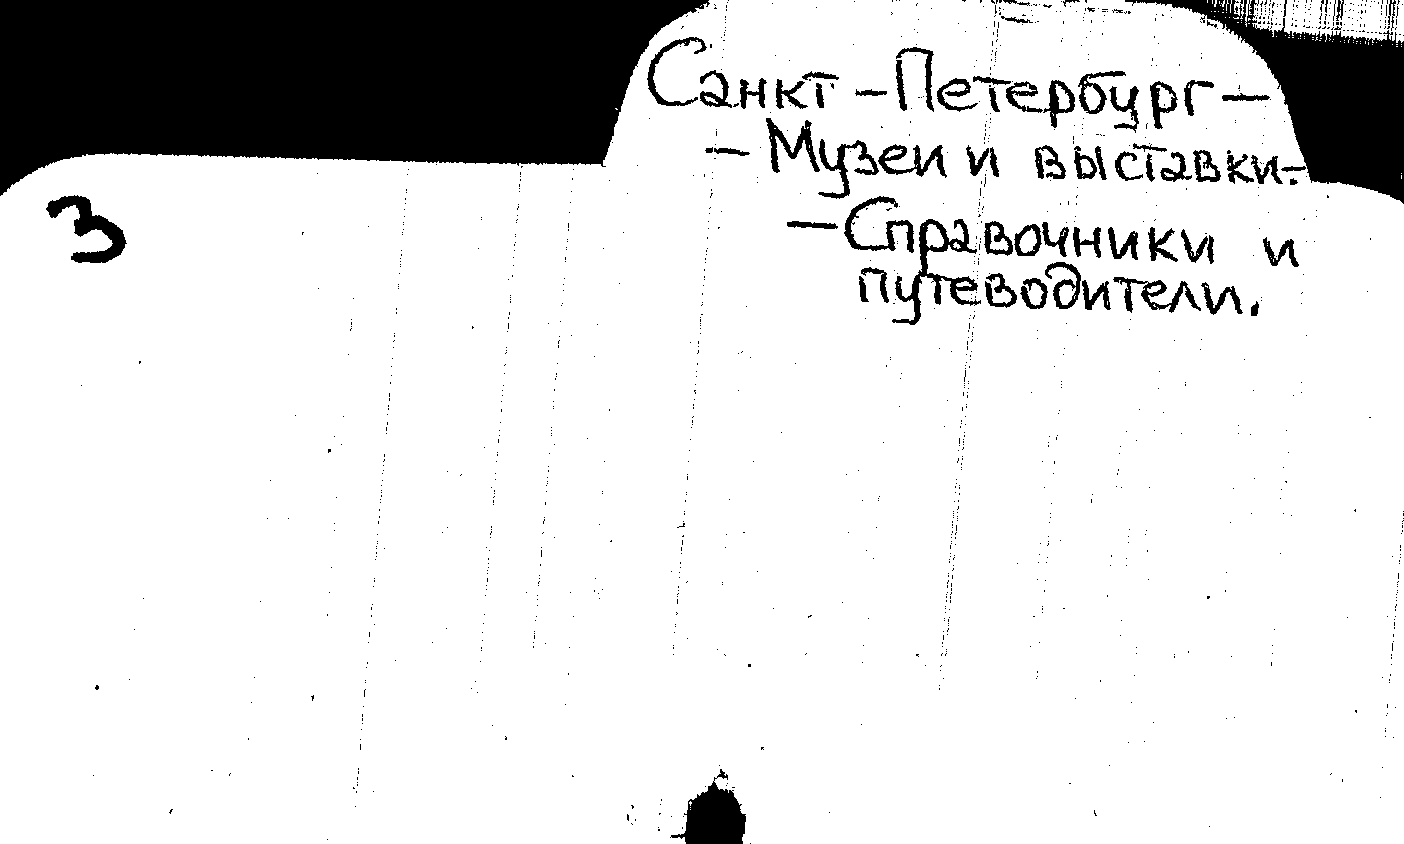 Санкт-Петербург —
— Музеи и выставки. —
— Справочники и
путеводители.
3